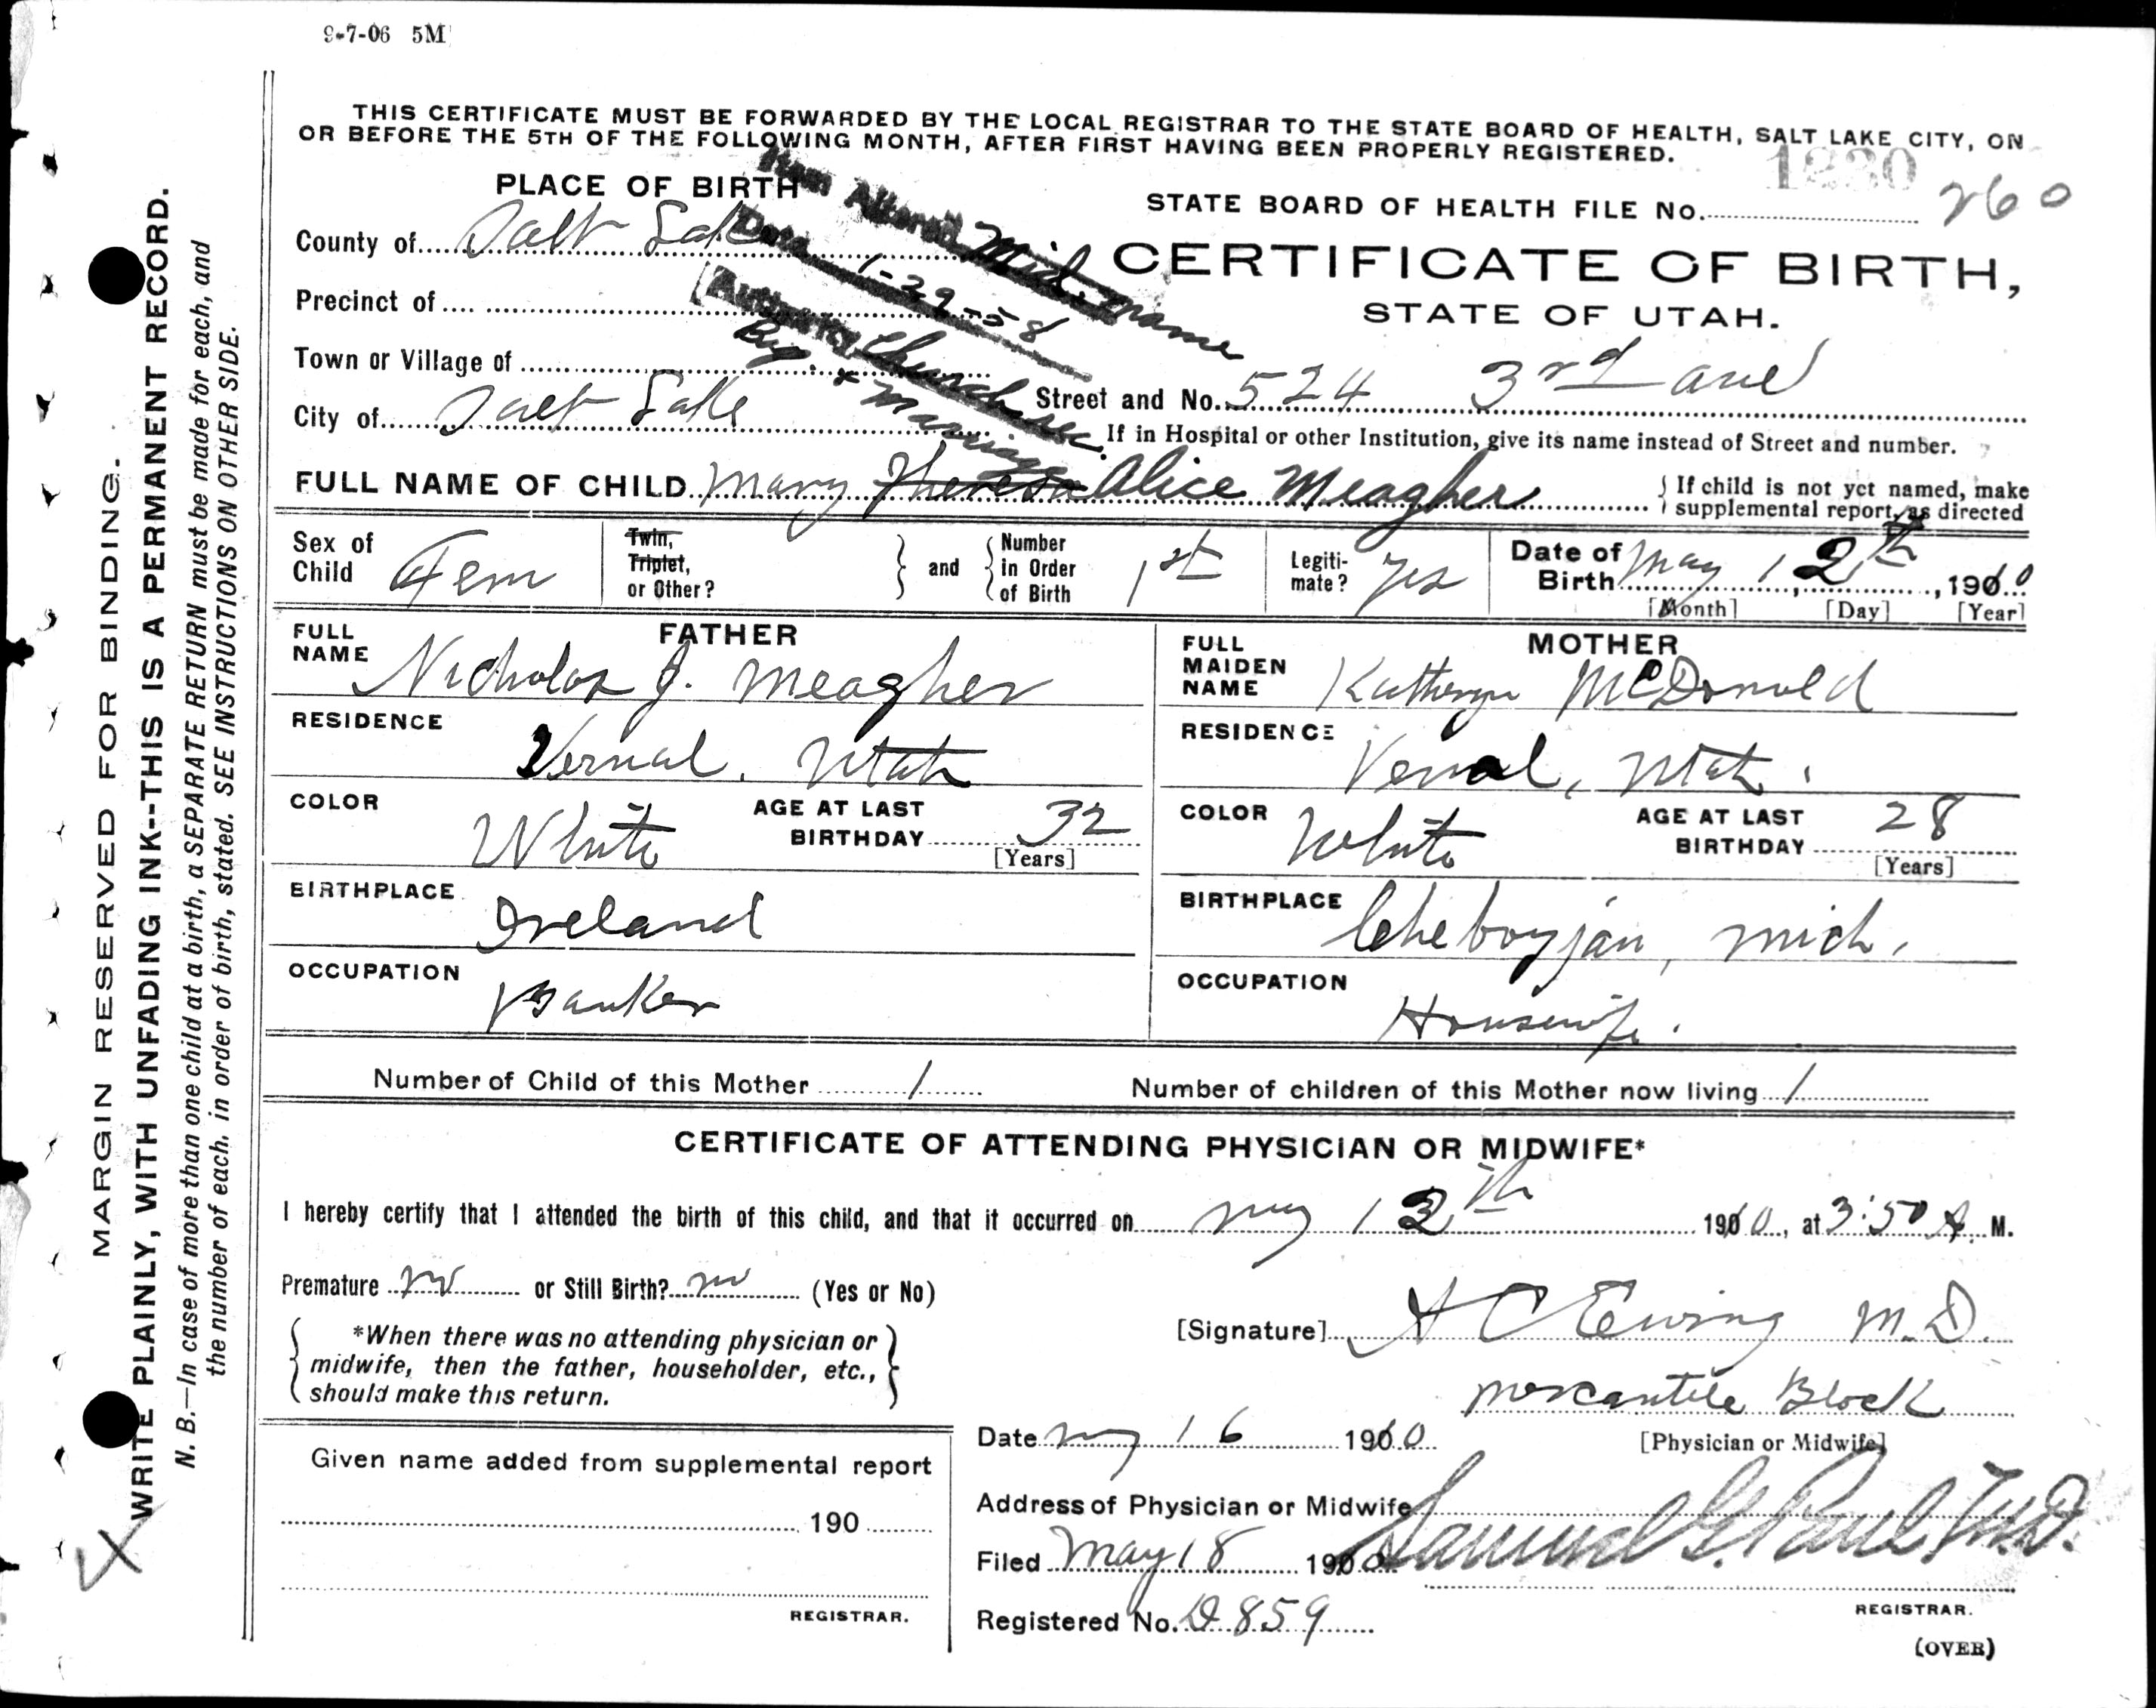 9-7-06 5M
THIS CERTIFICATE MUST BE FORWARDED BY THE LOCAL REGISTRAR TO THE STATE BOARD OF HEALTH, SALT LAKE CITY, ON
OR BEFORE THE 5TH OF THE FOLLOWING MONTH, AFTER FIRST HAVING BEEN PROPERLY REGISTERED.
1230
PLACE OF BIRTH
STATE BOARD OF HEALTH FILE No. 260
County of Salt Lake
Item Altered Mid. name
Date 1-29-58
Authority Church rec.
& Marriage
CERTIFICATE OF BIRTH,
STATE OF UTAH.
Precinct of
Town or Village of
City of Salt Lake
Street and No. 524 3rd ave
If in Hospital or other Institution, give its name instead of Street and number.
FULL NAME OF CHILD Mary Theresa Alice Meagher
If child is not yet named, make
supplemental report, as directed
Sex of Child Fem
Twin, Triplet, or Other?
and
Number in Order of Birth 1st
Legiti-mate? Yes
Date of Birth May 12th, 1910
[Month] [Day] [Year]
FATHER
FULL NAME Nicholas J. Meagher
RESIDENCE Vernal. Utah
COLOR White
AGE AT LAST BIRTHDAY 32
[Years]
BIRTHPLACE Ireland
OCCUPATION Banker
MOTHER
FULL MAIDEN NAME Katheryn McDonald
RESIDENCE Vernal, Utah.
COLOR White
AGE AT LAST BIRTHDAY 28
[Years]
BIRTHPLACE Cheboyjan, Mich.
OCCUPATION Housewife.
Number of Child of this Mother 1
Number of children of this Mother now living 1
CERTIFICATE OF ATTENDING PHYSICIAN OR MIDWIFE*
I hereby certify that I attended the birth of this child, and that it occurred on May 12th 1910, at 3:50 A. M.
Premature no or Still Birth? no (Yes or No)
*When there was no attending physician or
midwife, then the father, householder, etc.,
should make this return.
[Signature] A C Ewing M.D.
Mercantile Block
[Physician or Midwife]
Date May 16 1910
Given name added from supplemental report
190
REGISTRAR.
Address of Physician or Midwife
Filed May 18 1910
Samuel G. Paul M.D.
REGISTRAR.
Registered No. D 859
(OVER)
MARGIN RESERVED FOR BINDING.
WRITE PLAINLY, WITH UNFADING INK--THIS IS A PERMANENT RECORD.
N. B.—In case of more than one child at a birth, a SEPARATE RETURN must be made for each, and
the number of each, in order of birth, stated. SEE INSTRUCTIONS ON OTHER SIDE.